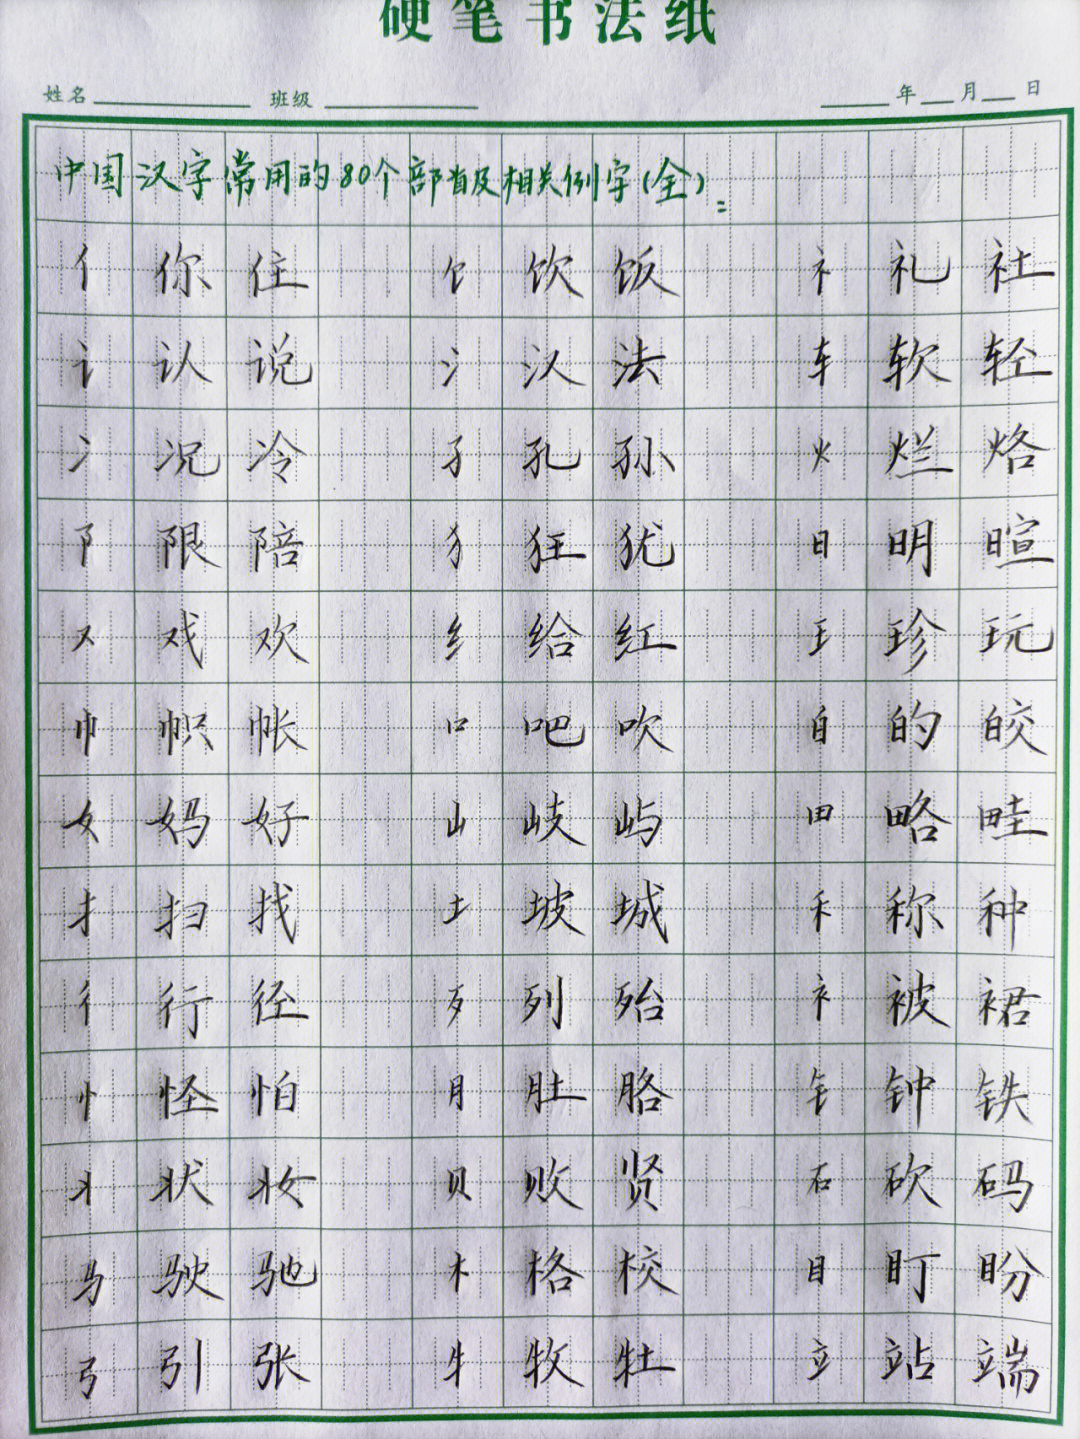 硬笔书法纸
姓名 班级 年 月 日
中国汉字常用的80个部首及相关例字(全):
亻 你 住 饣 饮 饭 礻 礼 社
讠 认 说 氵 汉 法 车 软 轻
冫 况 冷 孑 孔 孙 火 烂 烙
阝 限 陪 犭 狂 犹 日 明 暄
又 戏 欢 纟 给 红 王 珍 玩
巾 帜 帐 口 吧 吹 白 的 皎
女 妈 好 山 岐 屿 田 略 畦
扌 扫 找 土 坡 城 禾 称 种
彳 行 径 歹 列 殆 衤 被 裙
忄 怪 怕 月 肚 胳 钅 钟 铁
丬 状 妆 贝 败 贤 石 砍 码
马 驶 驰 木 格 校 目 盯 盼
弓 引 张 牜 牧 牡 立 站 端